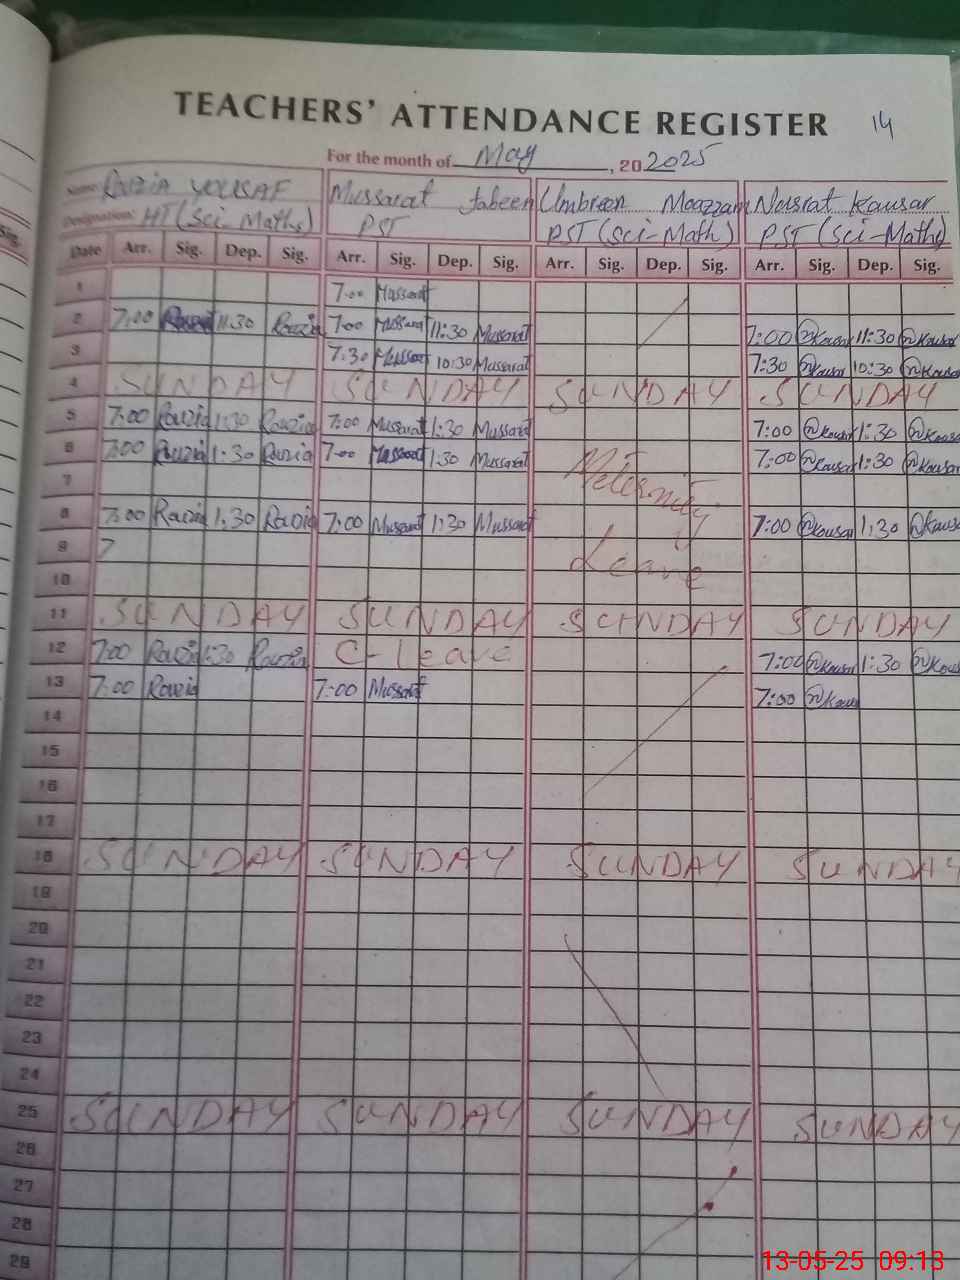 TEACHERS' ATTENDANCE REGISTER 14
For the month of May, 20 2025
Name: Rouzia YOUSAF Mussarat Jabeen Umbreen Moazzam Nusrat Kausar
Designation: HT (Sci-Maths) PST PST (Sci-Math) PST (Sci-Maths)
Date Arr. Sig. Dep. Sig. Arr. Sig. Dep. Sig. Arr. Sig. Dep. Sig. Arr. Sig. Dep. Sig.
1 7:00 Mussarat
2 7:00 11:30 Rouzia 7:00 Mussarat 11:30 Mussarat 7:00 @Kausar 11:30 @Kausar
3 7:30 Mussarat 10:30 Mussarat 7:30 @Kausar 10:30 @Kausar
4 SUNDAY SUNDAY SUNDAY SUNDAY
5 7:00 Rouzia 1:30 Rouzia 7:00 Mussarat 1:30 Mussarat 7:00 @Kausar 1:30 @Kausar
6 7:00 Rouzia 1:30 Rouzia 7:00 Mussarat 1:30 Mussarat 7:00 @Kausar 1:30 @Kausar
7 Meternity
8 7:00 Rouzia 1:30 Rouzia 7:00 Mussarat 1:30 Mussarat 7:00 @Kausar 1:30 @Kausar
9 7 Leave
10
11 SUNDAY SUNDAY SUNDAY SUNDAY
12 7:00 Rouzia 1:30 Rouzia C-Leave 7:00 @Kausar 1:30 @Kausar
13 7:00 Rouzia 7:00 Mussarat 7:00 @Kausar
14
15
16
17
18 SUNDAY SUNDAY SUNDAY SUNDAY
19
20
21
22
23
24
25 SUNDAY SUNDAY SUNDAY SUNDAY
26
27
28
29
13-05-25 09:13